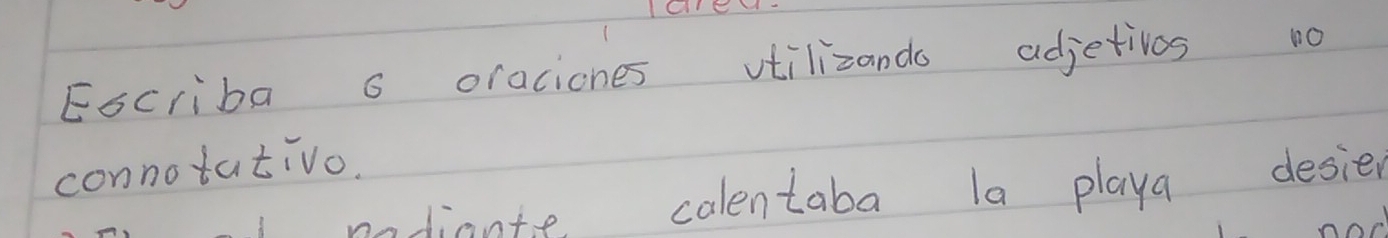 Tarea.
Escriba 6 oraciones utilizando adjetivos no
connotativo.
radiante calentaba la playa